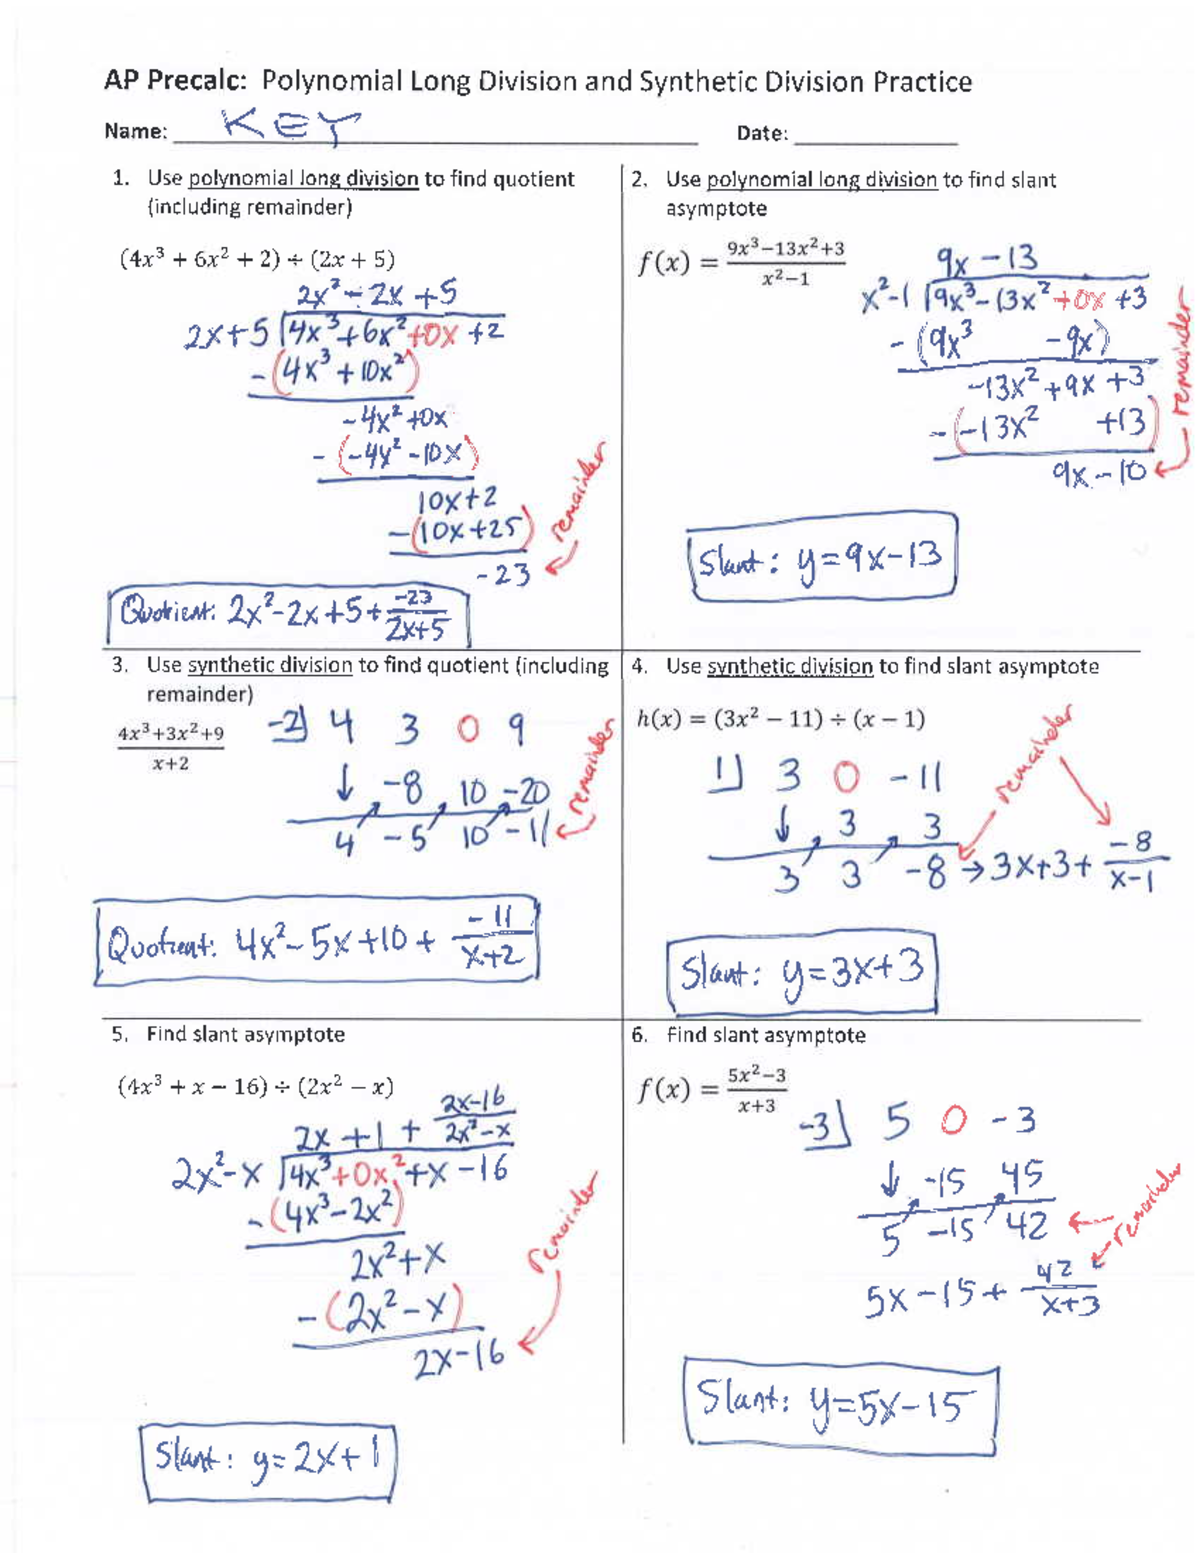 AP Precalc: Polynomial Long Division and Synthetic Division Practice
Name: KEY Date:
1. Use polynomial long division to find quotient
(including remainder)
(4x³ + 6x² + 2) ÷ (2x + 5)
2x² - 2x + 5
2x+5 4x³+6x²+0x+2
-(4x³+10x²)
-4x²+0x
-(-4x²-10x)
10x+2
-(10x+25)
-23
remainder
Quotient: 2x²-2x+5+ -23/2x+5
2. Use polynomial long division to find slant
asymptote
f(x) = 9x³−13x²+3/x²−1
9x-13
x²-1 9x³-13x²+0x+3
-(9x³ -9x)
-13x²+9x+3
-(-13x² +13)
9x-10
remainder
Slant: y=9x-13
3. Use synthetic division to find quotient (including
remainder)
4x³+3x²+9/x+2
-2 4 3 0 9
↓ -8 10 -20
4 -5 10 -11
remainder
Quotient: 4x²-5x+10+ -11/x+2
4. Use synthetic division to find slant asymptote
h(x) = (3x² − 11) ÷ (x − 1)
1 3 0 -11
↓ 3 3
3 3 -8 → 3x+3+ -8/x-1
remainder
Slant: y=3x+3
5. Find slant asymptote
(4x³ + x − 16) ÷ (2x² − x)
2x+1+ 2x-16/2x²-x
2x²-x 4x³+0x²+x-16
-(4x³-2x²)
2x²+x
-(2x²-x)
2x-16
remainder
Slant: y=2x+1
6. Find slant asymptote
f(x) = 5x²−3/x+3
-3 5 0 -3
↓ -15 45
5 -15 42
remainder
5x-15+ 42/x+3
Slant: y=5x-15